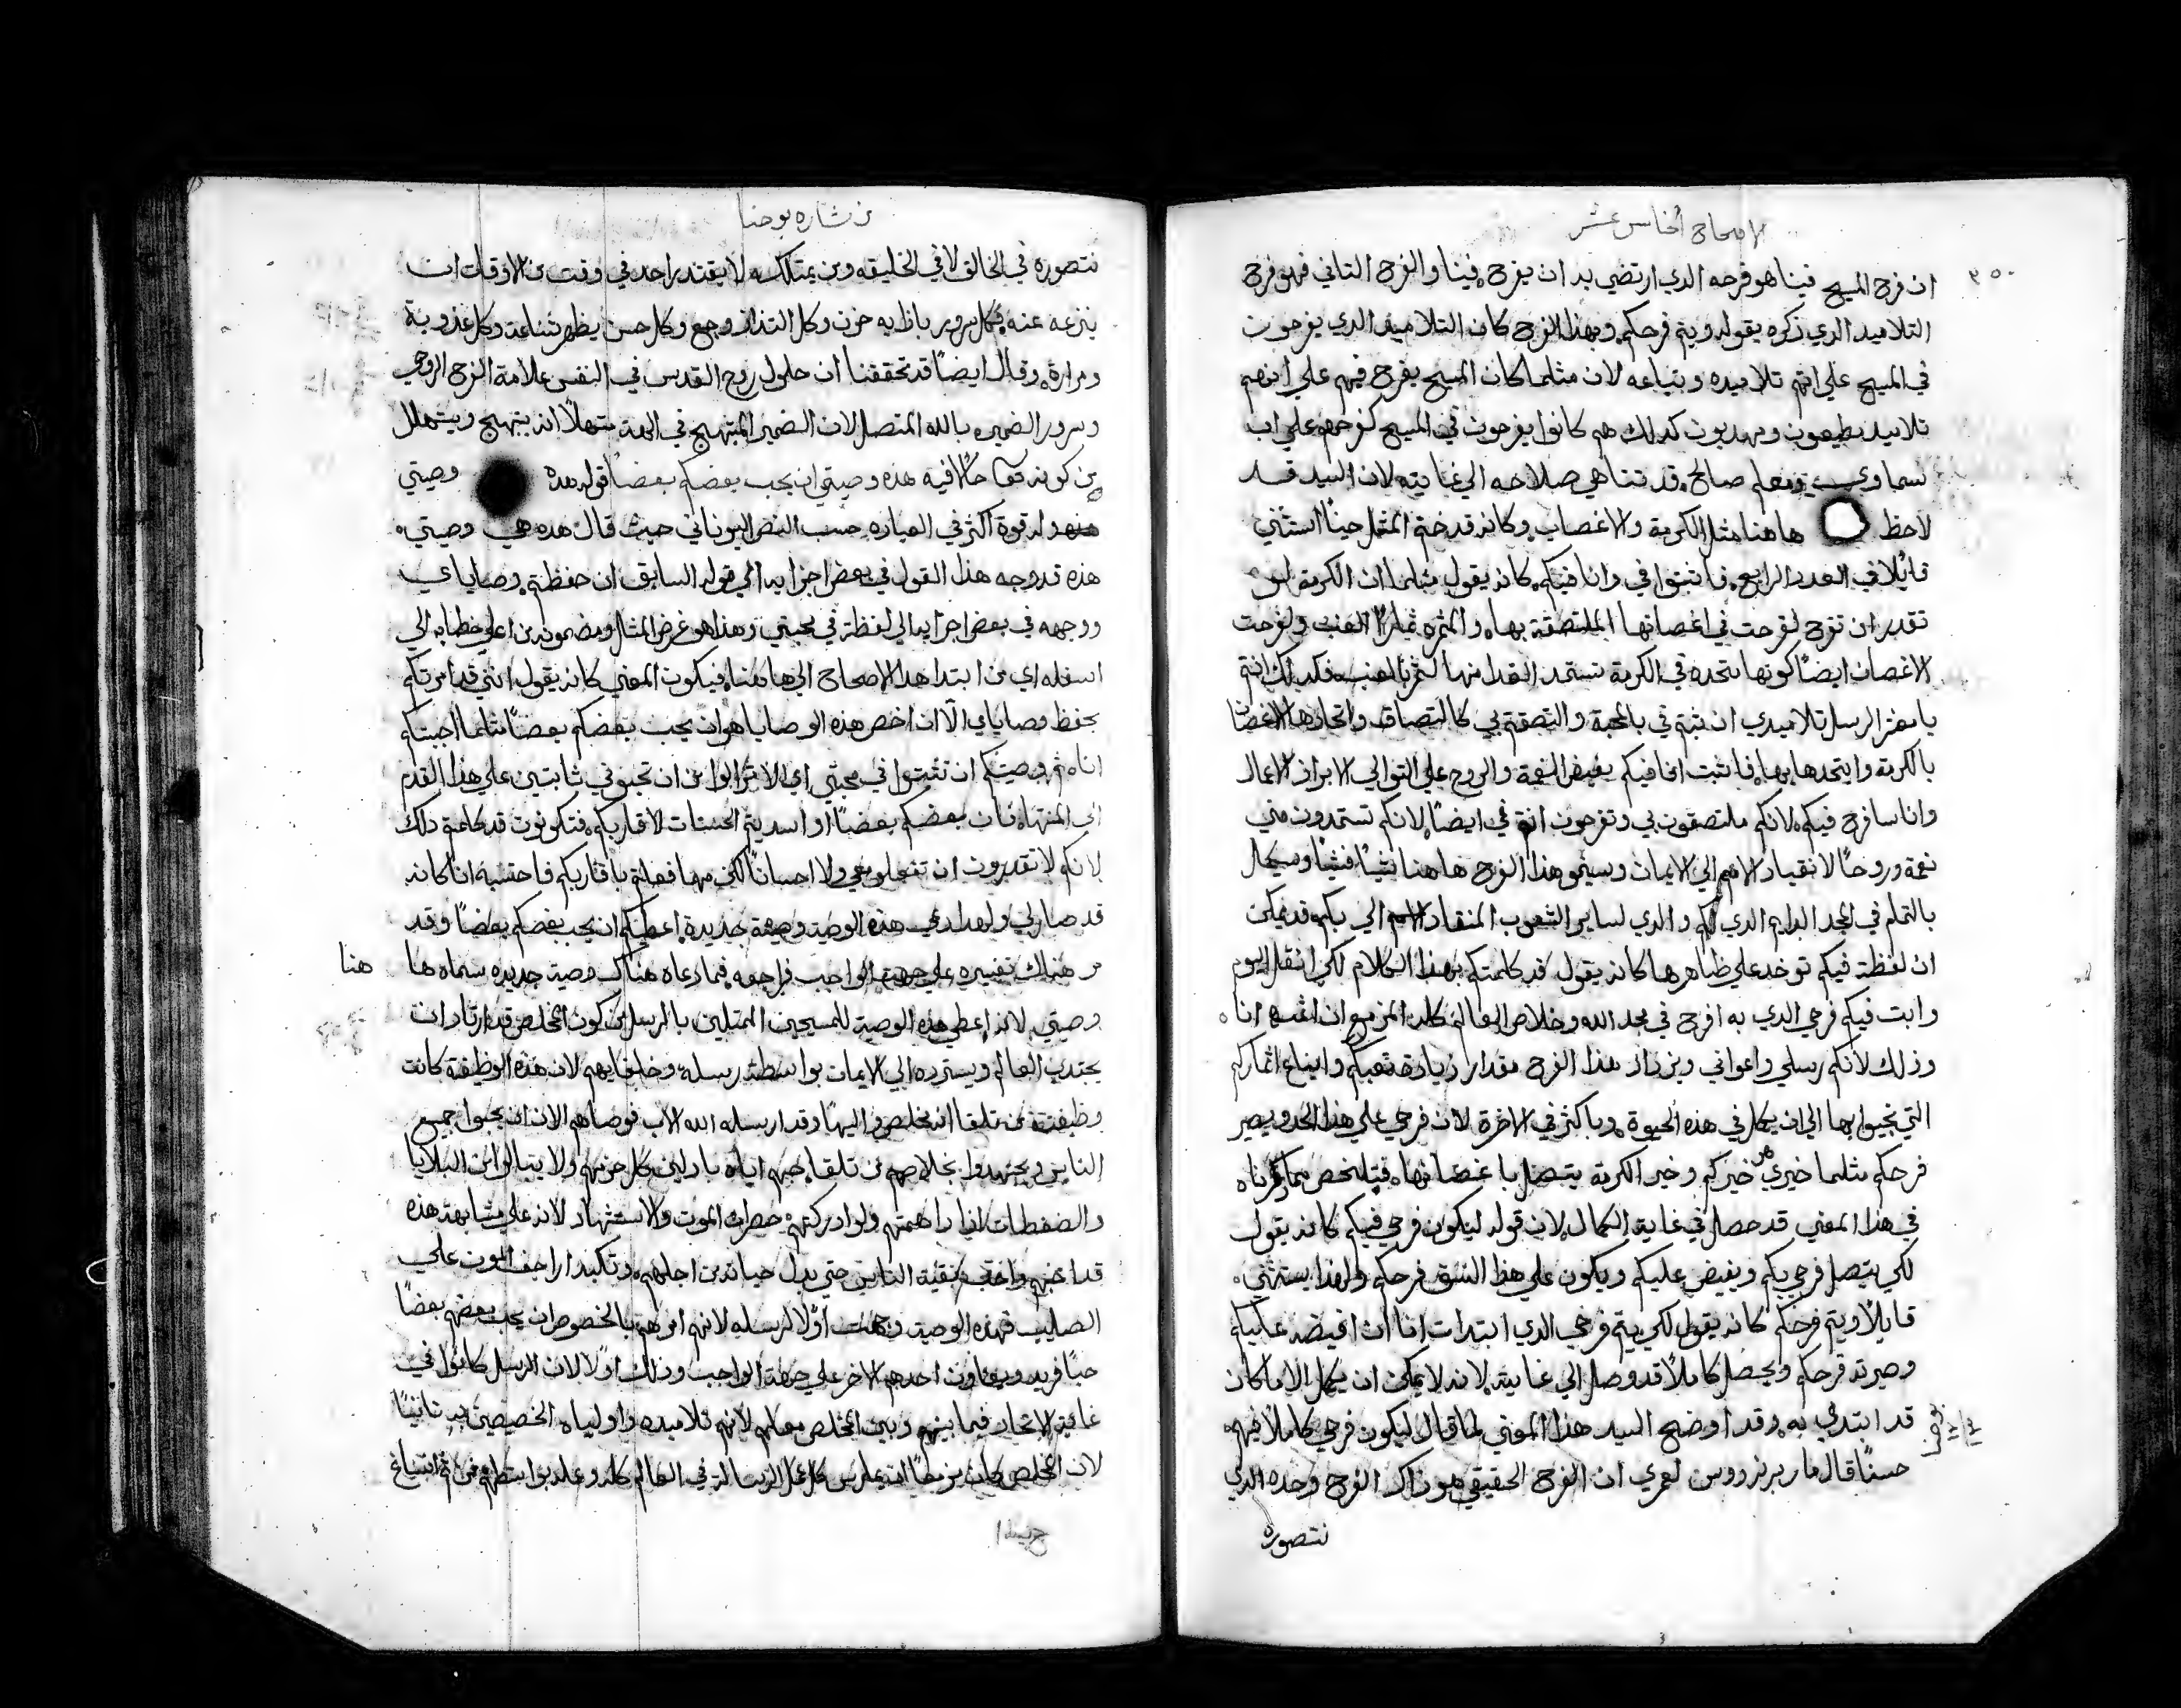 الاصحاح الخامس عشر
٣٥٠
ان فرح المسيح فينا هو فرحه الدي ارتضي بد ان يفرح فينا والفرح التاني فهو فرح
التلاميد الدي ذكره بقوله ويتم فرحكم وبهذا الفرح كان التلاميد الدي يفرحون
في المسيح علي انهم تلاميده وتباعه لان مثلما كان المسيح يفرح فيهم علي انهم
تلاميد يطيعون ومهدبون كدلك هم كانوا يفرحون في المسيح كفرحهم علي اب
سماوي ومعلم صالح قد تناهي صلاحه الي غايته لان السيد قد
لاحظ هاهنا مثل الكرمة والاغصاب وكانه قد ختم المثل حينًا استثني
قايلًا في العدد الرابع فاثبتوا في وانا فيكم كانه يقول مثلما ان الكرمة لو
تقدر ان تفرح لفرحت في اغصانها الملتصقة بها والمثمره ثمارًا العنب ولفرحت
الاغصان ايضًا كونها متحده في الكرمة تستمد الغدا منها لتثمر بالعنب فكدلك انتم
يا معشر الرسل تلاميدي ان ثبتم في بالمحبة والتصقتم بي كالتصاق واتحاد هالاغصان
بالكرمة وايتحدها بها فاثبت انا فيكم بفيض النعمة والروح علي التوالي لابراز الاعمال
وانا سافرح فيكم لانكم ملتصقون بي وتفرحون انتم في ايضًا لانكم تستمدون مني
نعمة وروحًا لانقياد الامم الي الايمان وسينمو هذا الفرح هاهنا شيًا فشيًا وسيكمل
بالتمام في المجد الدايم الدي لكم والدي لساير الشعوب المنقاد الي بكم وقد يمكن
ان لفظة فيكم توخد علي ظاهرها كانه يقول قد كلمتكم بهذا الكلام لكي انقل اليوم
وابت فيكم فرحي الدي به افرح في مجد الله وخلاص العالم كله المزمع ان انا
وذلك لانكم رسلي واعواني ويزداد هذا الفرح مقدار زيادة تعبكم وايناع اثماركم
التي تجيوا بها الي ان يكمل في هذه الحيوة وباكثر في الاخرة لان فرحي علي هذا الحد ويصير
فرحكم مثلما خيري هو خيركم وخير الكرمة يتصل باغصانها فيتلخص مما حررناه
في هذا المعني قد حصل في غاية الكمال لان قوله ليكون فرحي فيكم كانه يقول
لكي يتصل فرحي بكم ويفيض عليكم ويكون علي هذا النسق فرحكم ولهذا يستثني
قايلًا ويتم فرحكم كانه يقول لكي يتم فرحي الدي ابتدات انا ان افيضه عليكم
وصيرته فرحكم ويحصل كاملًا قد وصل الي غايته لانه لا يمكن ان يكمل الا ما كان
قد ابتدي به وقد اوضح السيد هذا المعني لما قال ليكون فرحي كاملًا فيهم
حسنًا قال مار برنردوس لعمري ان الفرح الحقيقي هو ذاك الفرح وحده الدي
نتصوره
بشاره يوحنا
نتصوره في الخالق لا في الخليقه ومن يمتلكه لا يقتدر احد في وقت من الاوقات ان
ينزعه عنه فكل سرور بازايه حزن وكل التذاذ وجع وكل حسن يظهر شناعة وكل عذوبة
ومرارة وقال ايضًا قد تحققنا ان حلول روح القدس في النفس علامة الفرح الروحي
وسرور الضمير بالله المتصل لان الضمير المبتهج في الله متهللًا انه يبتهج ويتهلل
من كونه حالًا فيه هذه وصيتي ان يحب بعضكم بعضًا قوله هذه وصيتي
وله قوة اكثر في العباره حسب النص اليوناني حيث قال هده هي وصيتي
هذه قد وجه هذا القول في بعض اجزايه الي قوله السابق ان حفظتم وصاياي
ووجهه في بعض اجزايه الي لفظة في محبتي وهذا هو غرض المثل ومضمونه من اعلي خطابه الي
اسفله اي من ابتدا هدا الاصحاح الي هاهنا فيكون المعني كانه يقول انني قد امرتكم
بحفظ وصاياي الّا ان اخص هذه الوصايا هو ان يحب بعضكم بعضًا مثلما احببتكم
انا ثم وصيتكم ان تثبتوا في محبتي اي لا تزالوا من ان تحبوني ثابتين علي هذا القدم
الي المنتها فان بعضكم بعضًا او اسديتم الحسنات لاقاربكم فتكونون قد كلمتم ذلك
لانكم لا تقدرون ان تفعلوا معي ولا احسانًا لكن مهما فعلتم باقاربكم فاحتسبه انا كانه
قد صار لي ولهدا دعي هذه الوصية وصية جديدة اعطيكم ان يحب بعضكم بعضًا وقد
مر هناك تفسيره علي جهة الواجب فراجعه فما دعاه هناك وصية جديده سماه ها هنا
وصيتي لانه اعطي هذه الوصية للمسيحيين الممثلين بالرسل من كون المخلص قد ارتاد ان
يجتدب العالم ويسترده الي الايمان بواسطة رسله وخلفايهم لان هذه الوظيفة كانت
وظيفته من تلقا انه مخلص والهًا وقد ارسله الله الاب فوصاهم الان ان يحبوا جميع
الناس ويجتهدوا بخلاصهم من تلقا حبهم اياه بادلين كل حزمهم ولا يبتالوا من البلايا
والضغطات اذا داهمتهم ولو ادركتهم حضرات الموت والاستشهاد لانه علي مشابهة هذه
قد احبهم واحب بقية الناس حتي بدل حياته من اجلهم وتكبد اراجيف الموت علي
الصليب فهذه الوصية وجهت اولًا لرسله لانهم امرهم بالخصوص ان يحب بعضهم بعضًا
حبًا فريد ويعاون احدهم الاخر علي جهة الواجب وذلك اولًا لان الرسل كانوا في
غاية الاتحاد فيما بينهم وبين المخلص معلمهم لانهم تلاميده واوليااه الخصيصين به تانيًا
لان المخلص كان مزمعًا ان يمارس كل عمل الرسالة في العالم كله وعلم بواسطتهم فمن ثم انتباغ